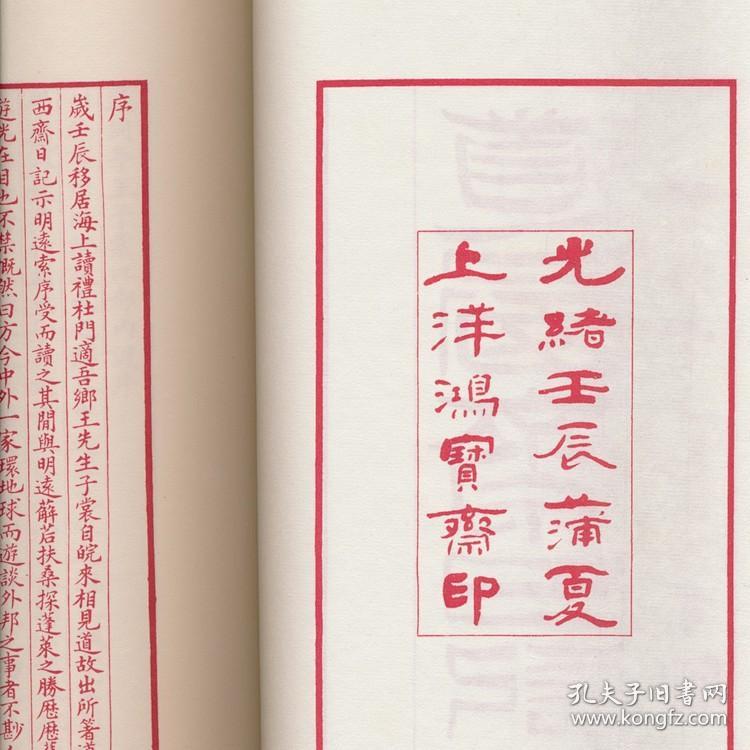 光緒壬辰蒲夏
上洋鴻寶齋印
序
歲壬辰移居海上讀禮杜門適吾鄉王先生子裳自皖來相見道故出所著
西齋日記示明遠索序受而讀之其閒與明遠薜若扶桑探蓬萊之勝歷歷
遊光在目也不禁慨然曰方今中外一家環地球而遊談外邦之事者不尠
孔夫子旧书网
www.kongfz.com